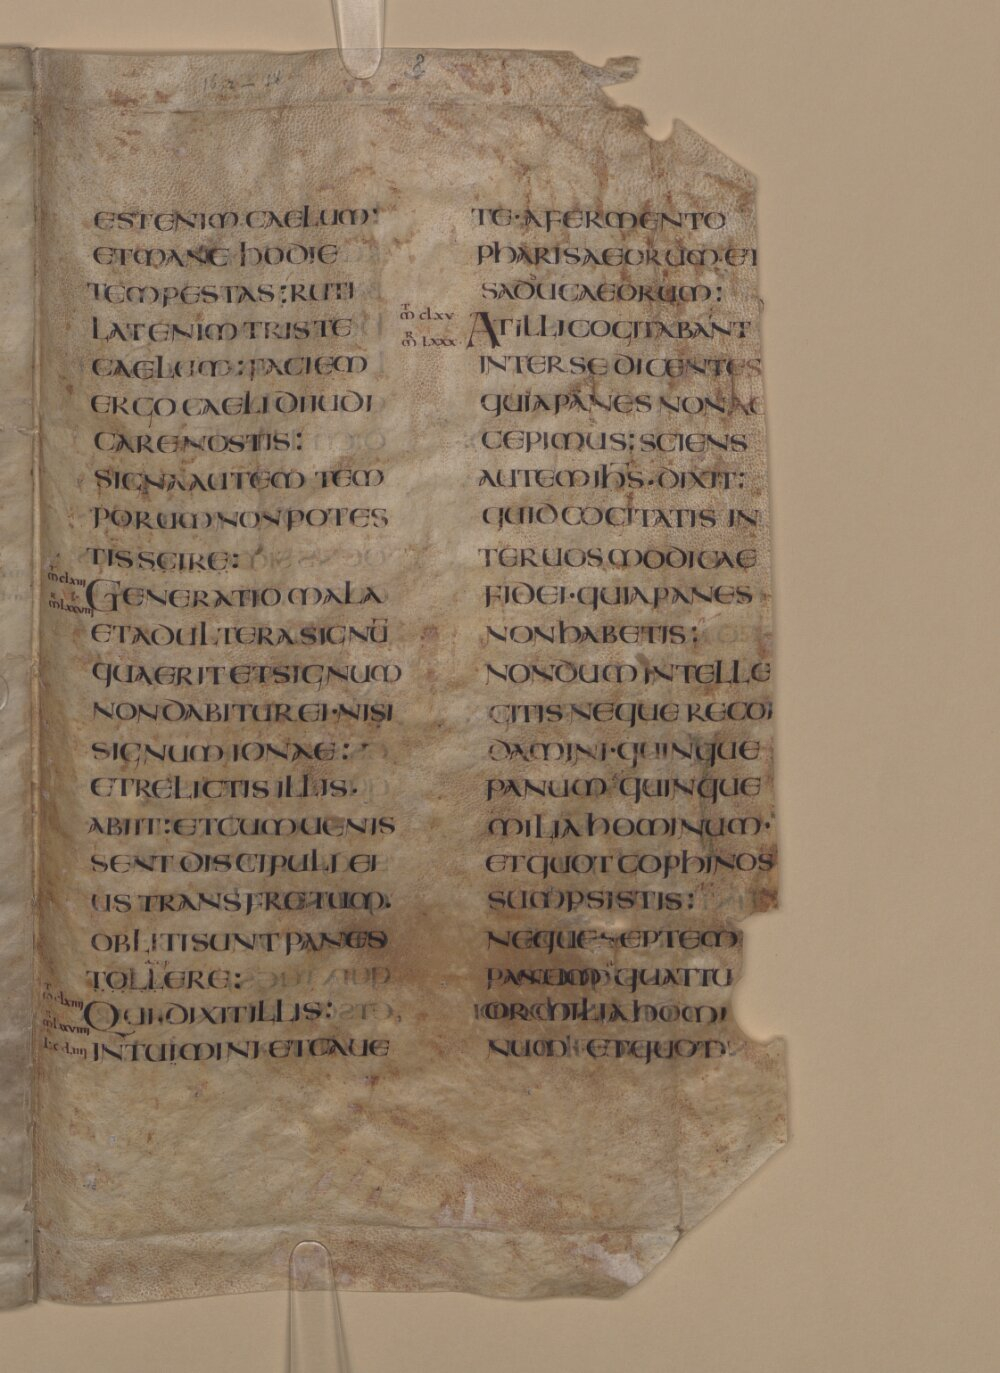 8
ESTENIM CAELUM:
ETMANE hODIE
TEMPESTAS: RUTI
LATENIM TRISTE
CAELUM: FACIEM
ERGO CAELI DIIUDI
CARE NOSTIS:
SIGNA AUTEM TEM
PORUM NON POTES
TIS SCIRE:
GENERATIO MALA
ET ADULTERA SIGNŪ
QUAERIT ET SIGNUM
NON DABITUR EI·NISI
SIGNUM IONAE:
ET RELICTIS ILLIS·
ABIIT: ET CUM UENIS
SENT DISCIPULI EI
US TRANS FRETUM·
OBLITI SUNT PANES
TOLLERE:
QUI·DIXIT ILLIS:
INTUIMINI·ET CAUE
TE·A FERMENTO
PhARISAEORUM·ET
SADUCAEORUM:
m̄ clxv
m̄ lxxx·
AT ILLI COGITABANT
INTER SE DICENTES
QUIA PANES NON AC
CEPIMUS: SCIENS
AUTEM IhS·DIXIT:
QUID COGITATIS IN
TER UOS MODICAE
FIDEI·QUIA PANES
NON hABETIS:
NONDUM INTELLE
GITIS NEQUE RECOR
DAMINI·QUINQUE
PANUM QUINQUE
MILIA hOMINUM·
ET QUOT COPhINOS
SUMPSISTIS:
NEQUE SEPTEM
PANUM QUATTU
OR MILIA hOMI
NUM· ET QUOT